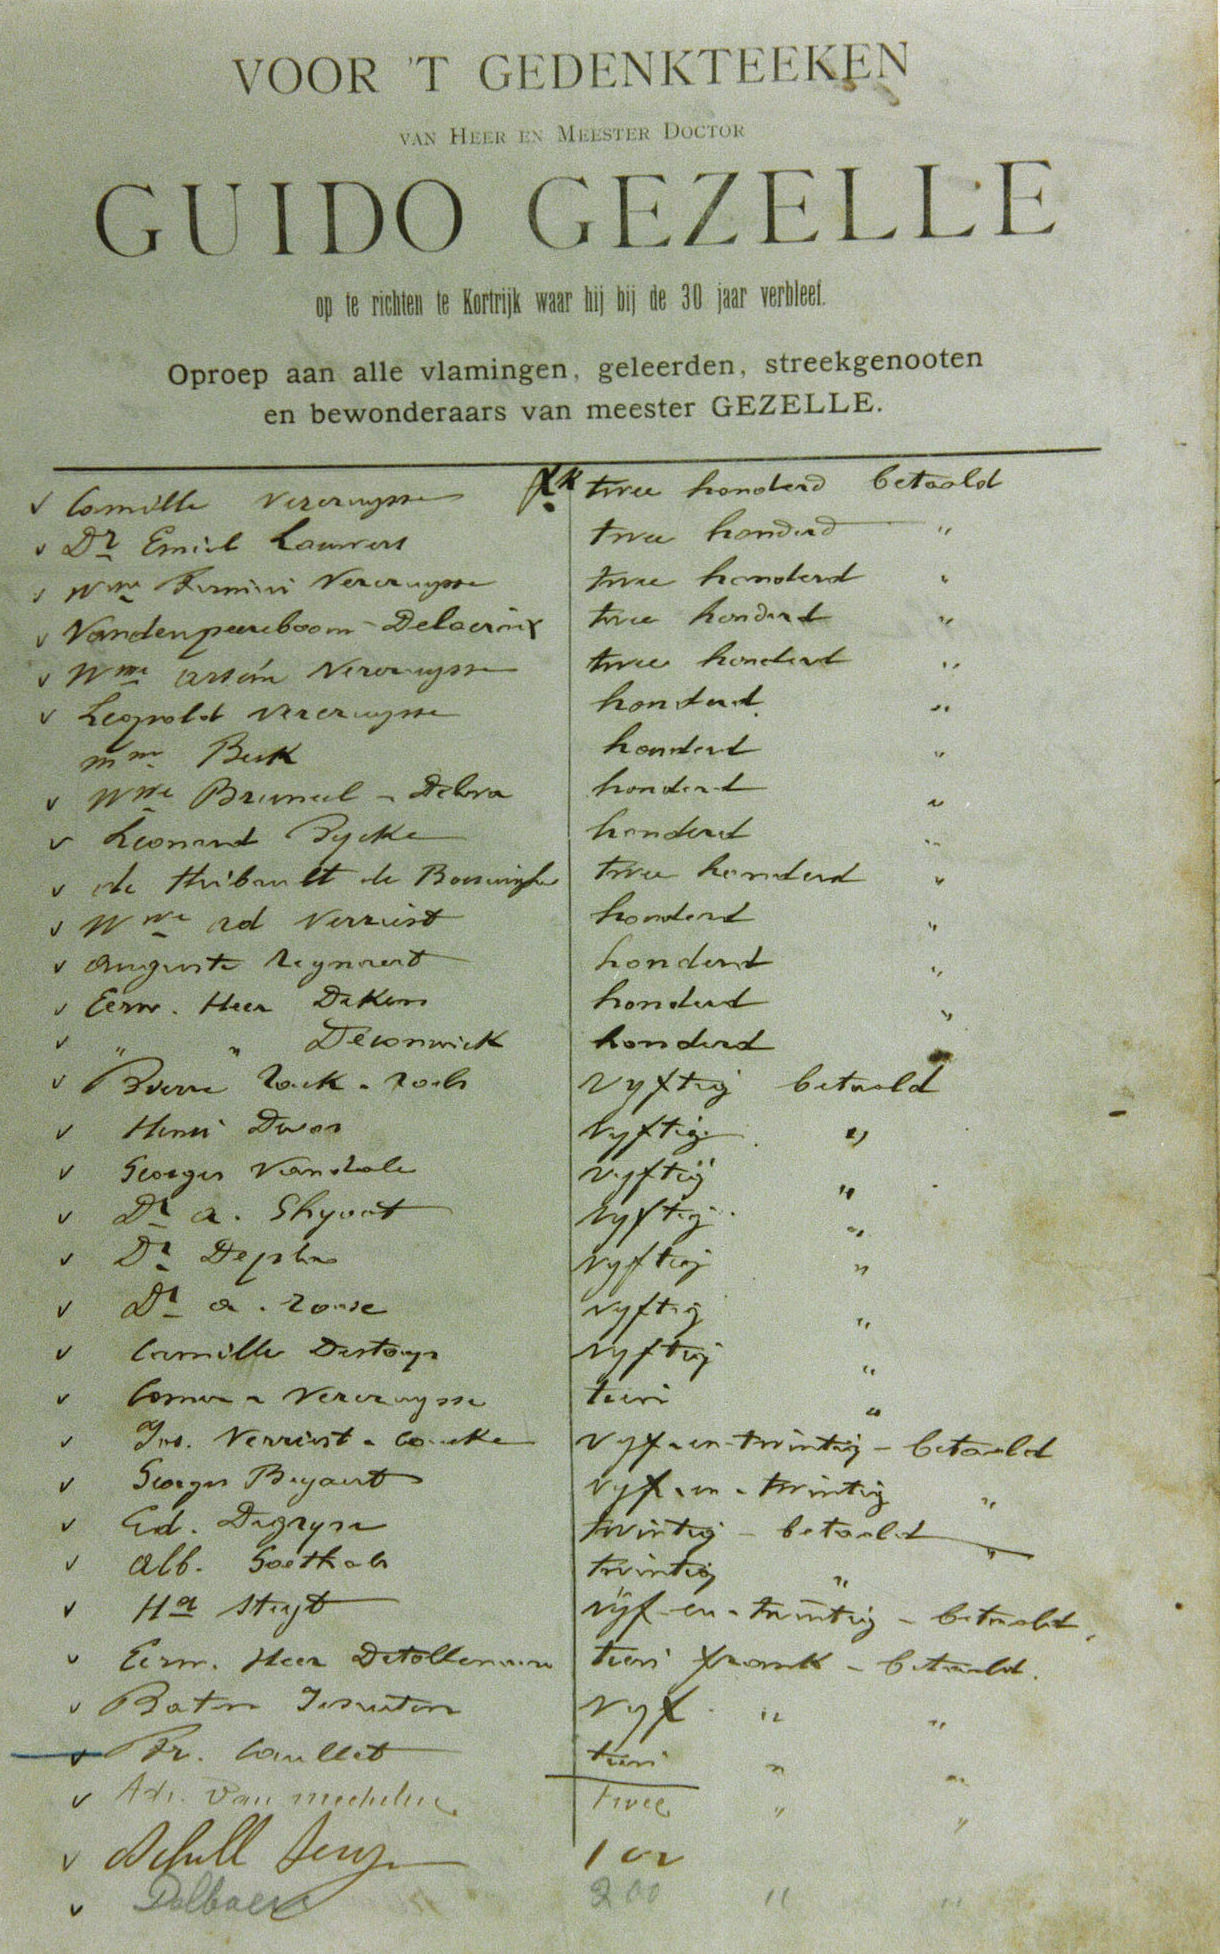 VOOR 'T GEDENKTEEKEN
VAN HEER EN MEESTER DOCTOR
GUIDO GEZELLE
op te richten te Kortrijk waar hij bij de 30 jaar verbleef.
Oproep aan alle vlamingen, geleerden, streekgenooten
en bewonderaars van meester GEZELLE.
v Camille Vercruysse twee honderd betaald
v Dr Emiel Lauwers twee honderd "
v Wwe Vercruysse twee honderd "
v Vandenpeereboom - Delacroix twee honderd "
v Wwe Arsène Vercruysse twee honderd "
v Leopold Vercruysse honderd "
honderd "
v Wwe Bruneel - honderd "
v Leonard Pycke honderd "
v de Thibault de Boesinghe twee honderd "
v Wwe Ad Verriest honderd "
v Auguste Reynaert honderd "
v Eerw. Heer Deken honderd "
v " " Deconinck honderd "
v vyftig betaald
v Henri vyftig "
v Georges Vandale vyftig "
v Dr A. Ghyoot vyftig "
v Dr vyftig "
v Dr A. vyftig "
v Camille Destoop vyftig "
v Vercruysse tien "
v Verriest - vyf-en-twintig - betaald
v Georges Beyaert vyf-en-twintig "
v Ed. Degryse twintig - betaald
v Alb. Goethals twintig " "
v vyf-en-twintig - betaald.
v Eerw. Heer Detollenaere tien frank - betaald.
v Paters Jesuiten vyf " "
v Fr. Caullet tien " "
v Adr. Van Mechelen twee " "
v Achille
v 200 " "